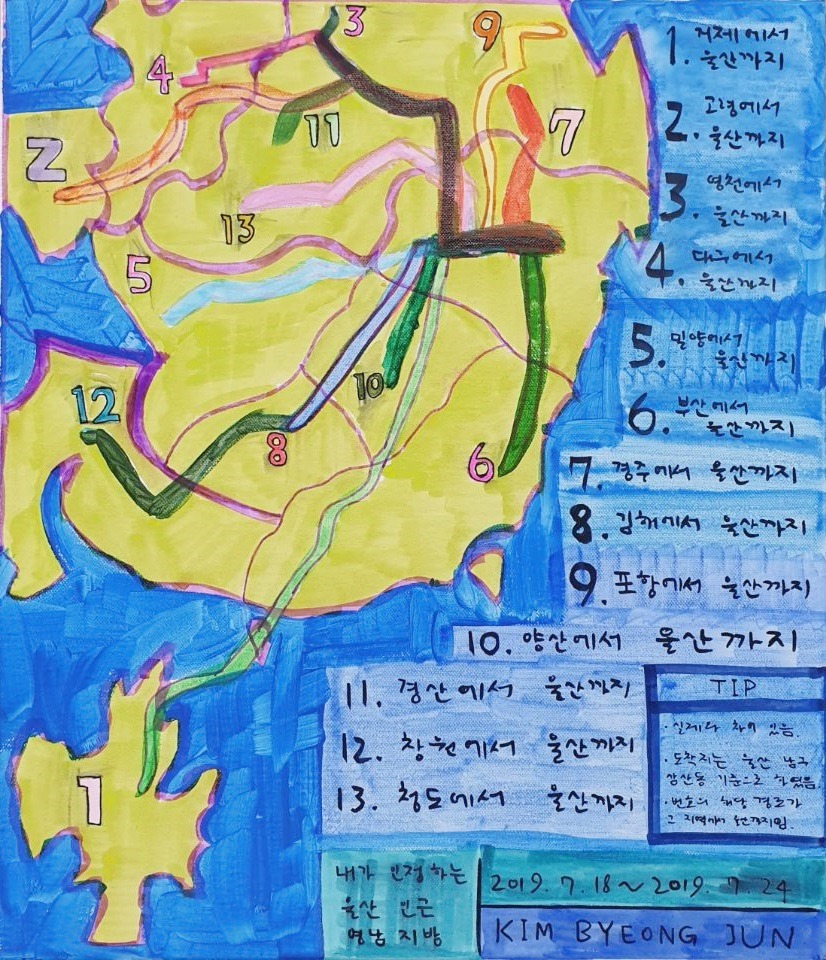 3
4
9
11
7
2
13
5
10
12
8
6
1
1. 거제에서
울산까지
2. 고령에서
울산까지
3. 영천에서
울산까지
4. 대구에서
울산까지
5. 밀양에서
울산까지
6. 부산에서
울산까지
7. 경주에서 울산까지
8. 김해에서 울산까지
9. 포항에서 울산까지
10. 양산에서 울산까지
11. 경산에서 울산까지
12. 창원에서 울산까지
13. 청도에서 울산까지
TIP
·실제와 차이 있음.
·도착지는 울산 남구
삼산동 기준으로 하였음.
·번호의 해당 경로가
그 지역에서 울산까지임.
내가 인정하는
울산 인근
영남 지방
2019. 7. 18 ~ 2019. 7. 24
KIM BYEONG JUN